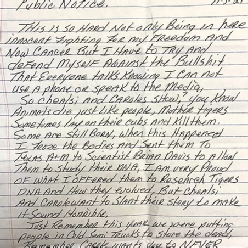 Public Notice.
This is so Hard Not only Being in here
innocent Fighting For my Freedom and
Now Cancer But I Have to Try and
defend myself Against the Bullshit
That Everyone talks Knowing I can not
use a phone or speak to the media,
So Chealsi and Caroles show, you know
Animals die just like people, Mother tigers
Sometimes turn on their cubs and Kill them.
Some are Still Born, when this Happened
I Froze the Bodies and Sent Them to
Texas A+M to Scientist Brian Davis to Allow
Them to Study their RNA. I am very Proud
of what I offered Them to Research Tigers
DNA and How they Evolved, But Chealsi
and Carole want to Slant their Story to make
it Sound Horrible.
Just Remember this
people in Jail
Remember Carole wants you to NEVER